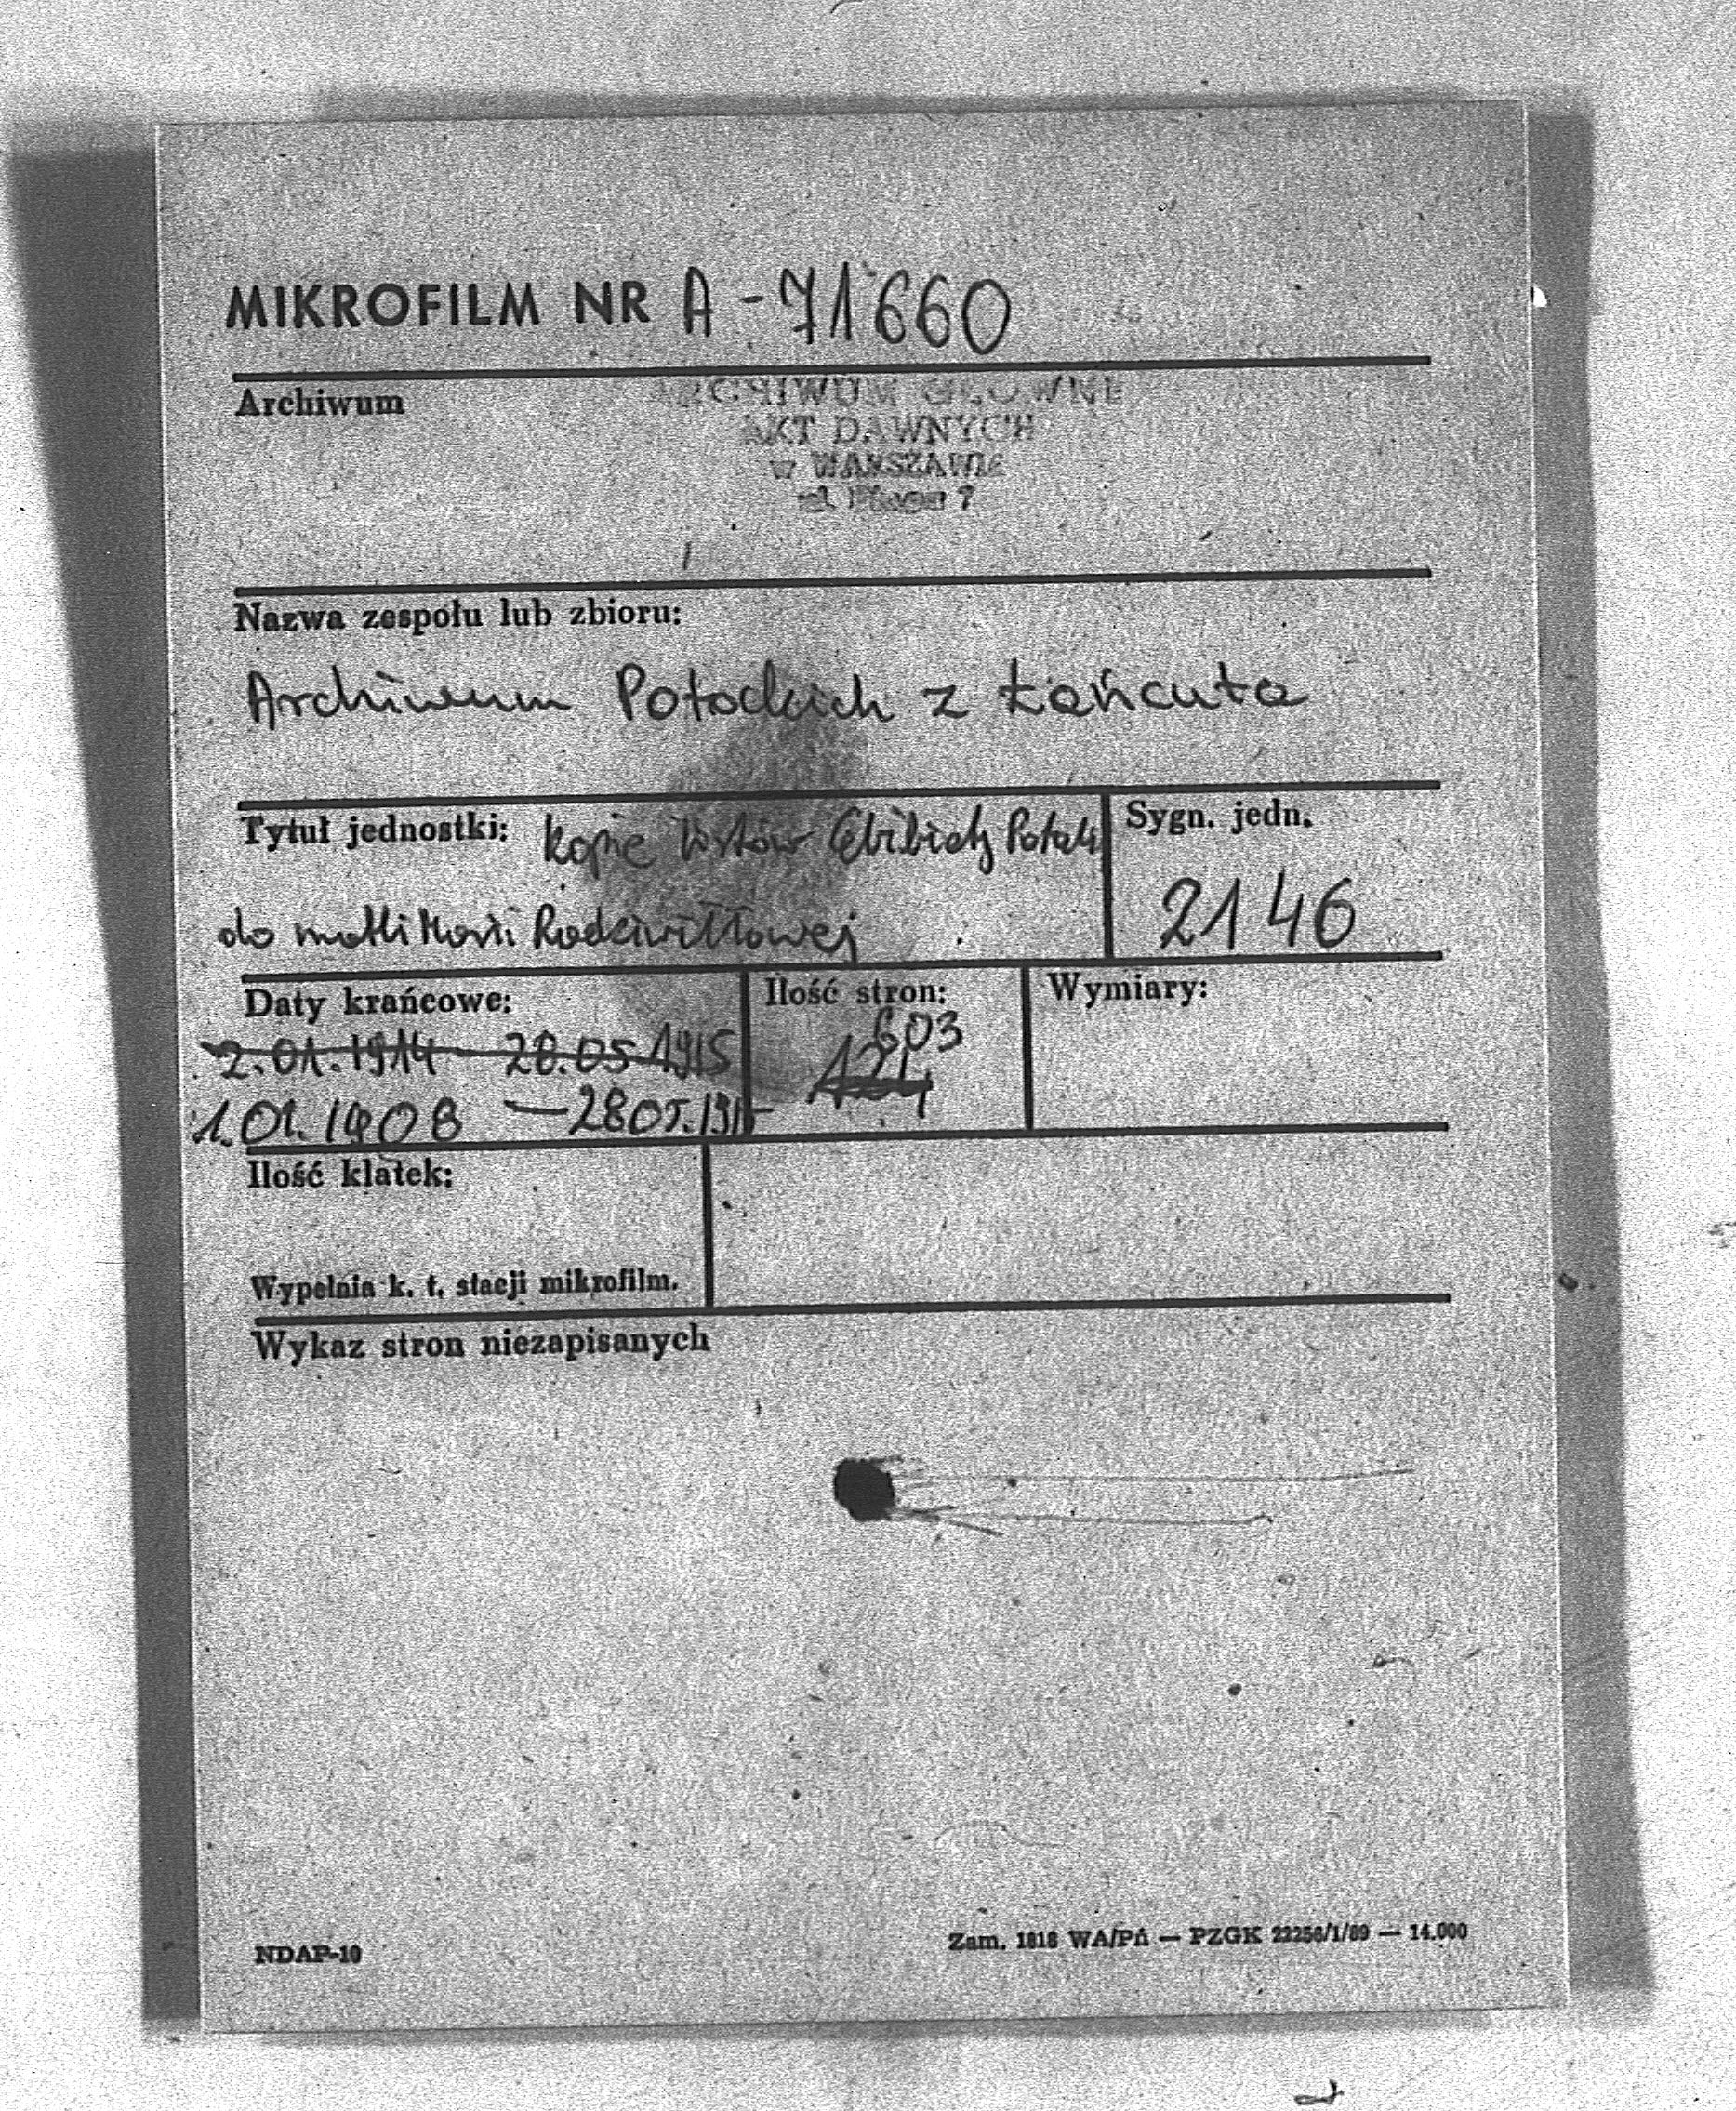 MIKROFILM NR A-71660
Archiwum
ARCHIWUM GŁÓWNE
AKT DAWNYCH
w WARSZAWIE
ul. Długa 7
Nazwa zespołu lub zbioru:
Archiwum Potockich z Łańcuta
Tytuł jednostki: kopie listów Elżbiety Potock
Sygn. jedn.
2146
do matki Marii Radziwiłłowej
Daty krańcowe:
2.01.1914 - 28.05.1915
1.01.1908 — 28.05.191
Ilość stron:
603
124
Wymiary:
Ilość klatek:
Wypełnia k. t. stacji mikrofilm.
Wykaz stron niezapisanych
NDAP-10
Zam. 1818 WA/Pń — PZGK 22256/1/89 — 14.000